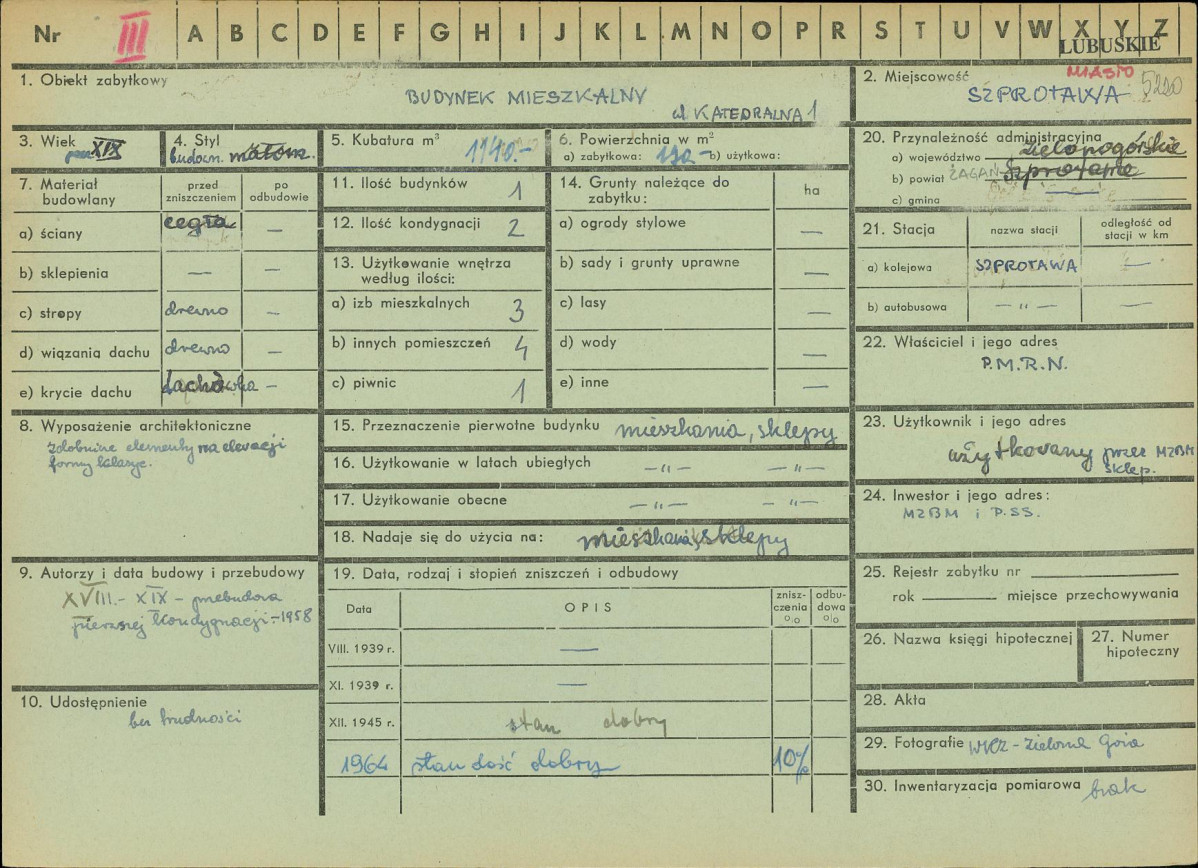 Nr III A B C D E F G H I J K L M N O P R S T U V W X Y Z
LUBUSKIE
1. Obiekt zabytkowy
BUDYNEK MIESZKALNY
ul KATEDRALNA 1
2. Miejscowość MIASTO 5220
SZPROTAWA
3. Wiek
XIX
4. Styl
budown.
5. Kubatura m³ 1140.-
6. Powierzchnia w m²
a) zabytkowa: 190 - b) użytkowa:
20. Przynależność administracyjna
a) województwo zielonogórskie
b) powiat ŻAGAŃ Szprotawa
c) gmina
7. Materiał budowlany
przed zniszczeniem
po odbudowie
a) ściany cegła —
b) sklepienia — —
c) stropy drewno —
d) wiązania dachu drewno —
e) krycie dachu dachówka —
11. Ilość budynków 1
12. Ilość kondygnacji 2
13. Użytkowanie wnętrza
według ilości:
a) izb mieszkalnych 3
b) innych pomieszczeń 4
c) piwnic 1
14. Grunty należące do
zabytku:
ha
a) ogrody stylowe —
b) sady i grunty uprawne —
c) lasy —
d) wody —
e) inne —
21. Stacja
nazwa stacji
odległość od
stacji w km
a) kolejowa SZPROTAWA —
b) autobusowa — „ — —
22. Właściciel i jego adres
P.M.R.N.
8. Wyposażenie architektoniczne
zdobnine elementy na elewacji
formy klasyc.
15. Przeznaczenie pierwotne budynku mieszkania, sklepy
16. Użytkowanie w latach ubiegłych — „ — — „ —
17. Użytkowanie obecne — „ — — „ —
18. Nadaje się do użycia na: mieszkania, sklepy
23. Użytkownik i jego adres
użytkovany przez MZBM
sklep.
24. Inwestor i jego adres:
MZBM i P.SS.
9. Autorzy i data budowy i przebudowy
XVIII. - XIX - przebudova
pierwszej kondygnacji - 1958
19. Data, rodzaj i stopień zniszczeń i odbudowy
Data
OPIS
znisz-
czenia
%
odbu-
dowa
%
VIII. 1939 r. —
XI. 1939 r. —
XII. 1945 r. stan dobry
1964 stan dość dobry 10%
25. Rejestr zabytku nr
rok miejsce przechowywania
26. Nazwa księgi hipotecznej
27. Numer
hipoteczny
10. Udostępnienie
bez trudności
28. Akta
29. Fotografie WKZ - Zielona Góra
30. Inwentaryzacja pomiarowa brak